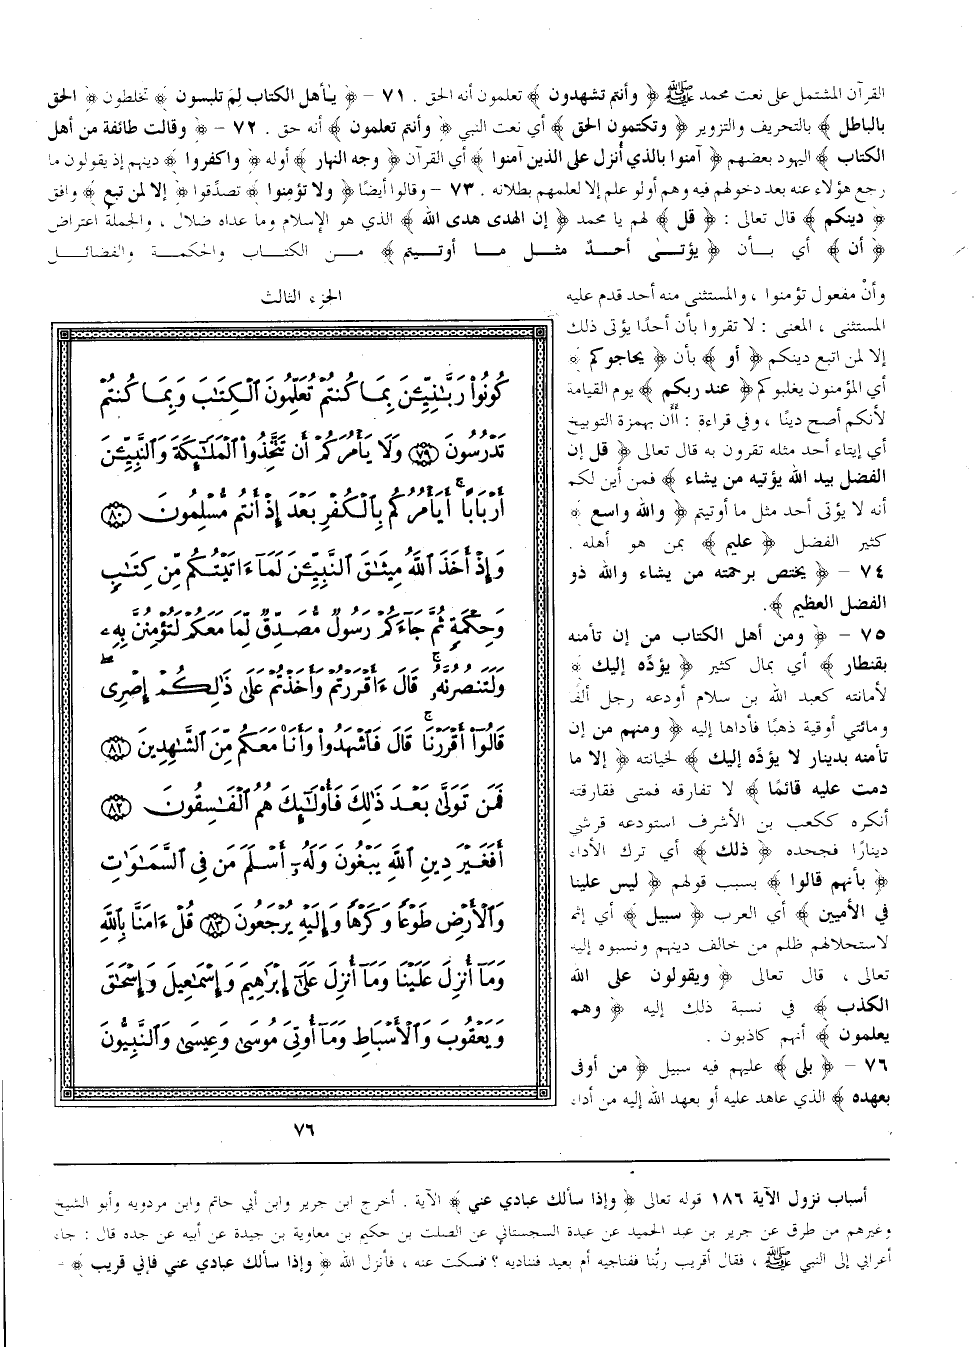 القرآن المشتمل على نعت محمد ﷺ ﴿ وأنتم تشهدون ﴾ تعلمون أنه الحق . ٧١ – ﴿ يأهل الكتاب لِمَ تلبسون ﴾ تخلطون ﴿ الحق
بالباطل ﴾ بالتحريف والتزوير ﴿ وتكتمون الحق ﴾ أي نعت النبي ﴿ وأنتم تعلمون ﴾ أنه حق . ٧٢ – ﴿ وقالت طائفة من أهل
الكتاب ﴾ اليهود بعضهم ﴿ آمنوا بالذي أُنزل على الذين آمنوا ﴾ أي القرآن ﴿ وجه النهار ﴾ أوله ﴿ واكفروا ﴾ دينهم إذ يقولون ما
رجع هؤلاء عنه بعد دخولهم فيه وهم أولو علم إلا لعلمهم بطلانه . ٧٣ – وقالوا أيضًا ﴿ ولا تؤمنوا ﴾ تصدِّقوا ﴿ إلا لمن تبع ﴾ وافق
﴿ دينكم ﴾ قال تعالى : ﴿ قل ﴾ لهم يا محمد ﴿ إن الهدى هدى الله ﴾ الذي هو الإسلام وما عداه ضلال ، والجملةُ اعتراض
﴿ أن ﴾ أي بـأن ﴿ يؤتـى أحـدٌ مثـل مـا أوتيتم ﴾ مـن الكتـاب والحكمـة والفضائـل
وأنْ مفعول تؤمنوا ، والمستثنى منه أحد قدم عليه
المستثنى ، المعنى : لا تقروا بأن أحدًا يؤتى ذلك
إلا لمن اتبع دينكم ﴿ أو ﴾ بأن ﴿ يحاجوكم ﴾
أي المؤمنون يغلبوكم ﴿ عند ربكم ﴾ يوم القيامة
لأنكم أصح دينًا ، وفي قراءة : أأن بهمزة التوبيخ
أي إيتاء أحد مثله تقرون به قال تعالى ﴿ قل إن
الفضل بيد الله يؤتيه من يشاء ﴾ فمن أين لكم
أنه لا يؤتى أحد مثل ما أوتيتم ﴿ والله واسع ﴾
كثير الفضل ﴿ عليم ﴾ بمن هو أهله .
٧٤ – ﴿ يختص برحمته من يشاء والله ذو
الفضل العظيم ﴾.
٧٥ – ﴿ ومن أهل الكتاب من إن تأمنه
بقنطار ﴾ أي بمال كثير ﴿ يؤدِّه إليك ﴾
لأمانته كعبد الله بن سلام أودعه رجل ألفا
ومائتي أوقية ذهبًا فأداها إليه ﴿ ومنهم من إن
تأمنه بدينار لا يؤدِّه إليك ﴾ لخيانته ﴿ إلا ما
دمت عليه قائمًا ﴾ لا تفارقه فمتى فقارقته
أنكره ككعب بن الأشرف استودعه قرشي
دينارًا فجحده ﴿ ذلك ﴾ أي ترك الأداء
﴿ بأنهم قالوا ﴾ بسبب قولهم ﴿ ليس علينا
في الأميين ﴾ أي العرب ﴿ سبيل ﴾ أي إثم
لاستحلالهم ظلم من خالف دينهم ونسبوه إليه
تعالى ، قال تعالى ﴿ ويقولون على الله
الكذب ﴾ في نسبة ذلك إليه ﴿ وهم
يعلمون ﴾ أنهم كاذبون .
٧٦ – ﴿ بلى ﴾ عليهم فيه سبيل ﴿ من أوفى
بعهده ﴾ الذي عاهد عليه أو بعهد الله إليه من أداء
الجزء الثالث
كُونُوا۟ رَبَّـٰنِيِّـۧنَ بِمَا كُنتُمْ تُعَلِّمُونَ ٱلْكِتَـٰبَ وَبِمَا كُنتُمْ
تَدْرُسُونَ ﴿٧٩﴾ وَلَا يَأْمُرَكُمْ أَن تَتَّخِذُوا۟ ٱلْمَلَـٰٓئِكَةَ وَٱلنَّبِيِّـۧنَ
أَرْبَابًا ۗ أَيَأْمُرُكُم بِٱلْكُفْرِ بَعْدَ إِذْ أَنتُم مُّسْلِمُونَ ﴿٨٠﴾
وَإِذْ أَخَذَ ٱللَّهُ مِيثَـٰقَ ٱلنَّبِيِّـۧنَ لَمَآ ءَاتَيْتُكُم مِّن كِتَـٰبٍ
وَحِكْمَةٍ ثُمَّ جَآءَكُمْ رَسُولٌ مُّصَدِّقٌ لِّمَا مَعَكُمْ لَتُؤْمِنُنَّ بِهِۦ
وَلَتَنصُرُنَّهُۥ ۚ قَالَ ءَأَقْرَرْتُمْ وَأَخَذْتُمْ عَلَىٰ ذَٰلِكُمْ إِصْرِى ۖ
قَالُوٓا۟ أَقْرَرْنَا ۚ قَالَ فَٱشْهَدُوا۟ وَأَنَا۠ مَعَكُم مِّنَ ٱلشَّـٰهِدِينَ ﴿٨١﴾
فَمَن تَوَلَّىٰ بَعْدَ ذَٰلِكَ فَأُو۟لَـٰٓئِكَ هُمُ ٱلْفَـٰسِقُونَ ﴿٨٢﴾
أَفَغَيْرَ دِينِ ٱللَّهِ يَبْغُونَ وَلَهُۥٓ أَسْلَمَ مَن فِى ٱلسَّمَـٰوَٰتِ
وَٱلْأَرْضِ طَوْعًا وَكَرْهًا وَإِلَيْهِ يُرْجَعُونَ ﴿٨٣﴾ قُلْ ءَامَنَّا بِٱللَّهِ
وَمَآ أُنزِلَ عَلَيْنَا وَمَآ أُنزِلَ عَلَىٰٓ إِبْرَٰهِيمَ وَإِسْمَـٰعِيلَ وَإِسْحَـٰقَ
وَيَعْقُوبَ وَٱلْأَسْبَاطِ وَمَآ أُوتِىَ مُوسَىٰ وَعِيسَىٰ وَٱلنَّبِيُّونَ
٧٦
أسباب نزول الآية ١٨٦ قوله تعالى ﴿ وإذا سألك عبادي عني ﴾ الآية . أخرج ابن جرير وابن أبي حاتم وابن مردويه وأبو الشيخ
وغيرهم من طرق عن جرير بن عبد الحميد عن عبدة السجستاني عن الصلت بن حكيم بن معاوية بن جيدة عن أبيه عن جده قال : جاء
أعرابي إلى النبي ﷺ ، فقال أقريب ربُّنا فنناجيه أم بعيد فنناديه ؟ فسكت عنه ، فأنزل الله ﴿ وإذا سألك عبادي عني فإني قريب ﴾ -